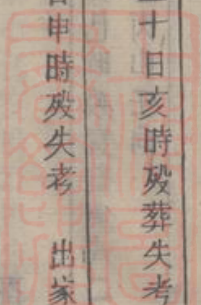 十日亥時殁葬失考
日申時殁失考 出家